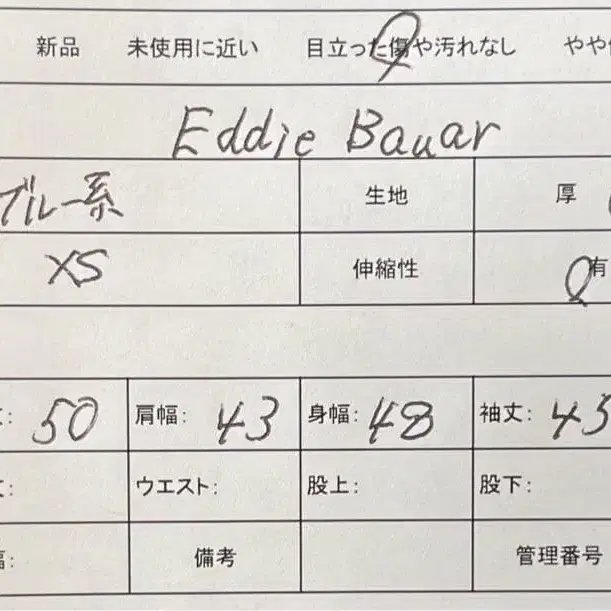 新品 未使用に近い 目立った傷や汚れなし やや
Eddie Bauar
ブルー系 生地 厚
XS 伸縮性 有
: 50 肩幅: 43 身幅: 48 袖丈: 45
: ウエスト: 股上: 股下:
: 備考 管理番号